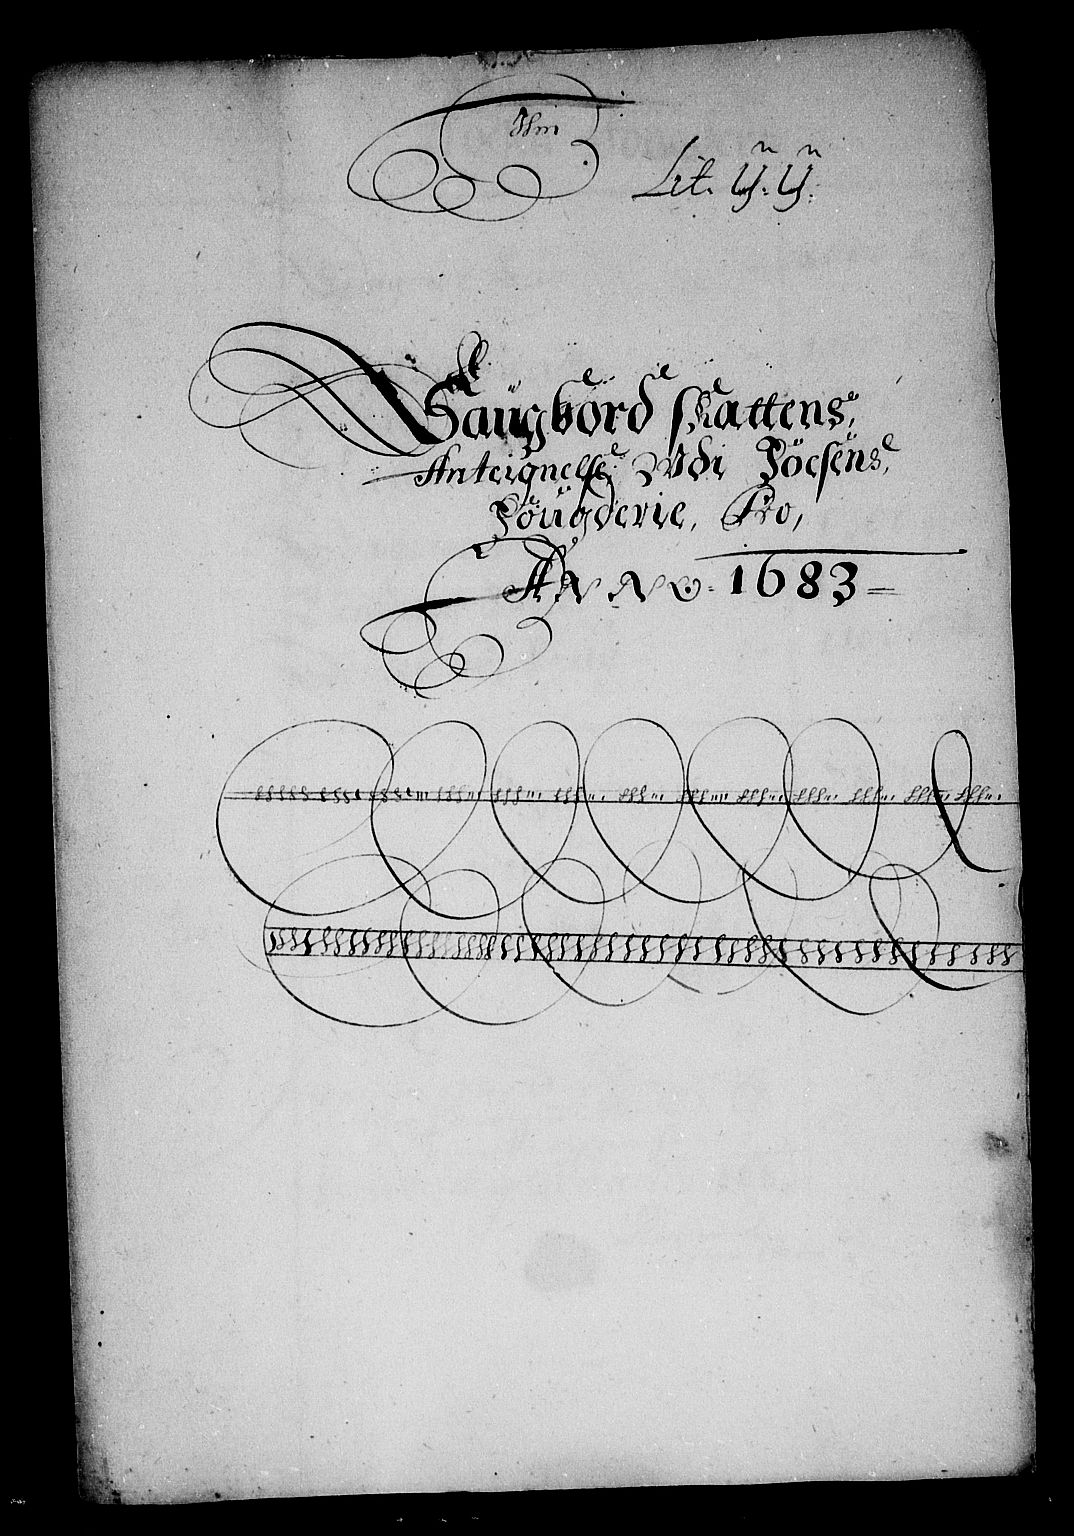 Lit. ÿ. ÿ:
Saugbord skattens,
Anteignelse Udi Föesens,
Föugderie, Pro,
ANNO. 1683